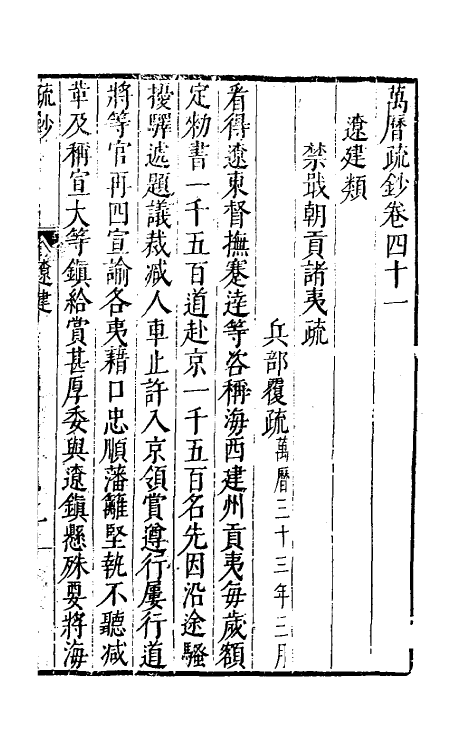 萬曆疏鈔卷四十一
遼建類
禁戢朝貢諸夷疏
兵部覆疏萬曆三十三年三月
看得遼東督撫蹇達等咨稱海西建州貢夷每歲額
定勑書一千五百道赴京一千五百名先因沿途騷
擾驛遞題議裁减人車止許入京領賞遵行屢行道
將等官再四宣諭各夷藉口忠順藩籬堅執不聽减
革及稱宣大等鎮給賞甚厚委與遼鎮懸殊要將海
疏鈔
遼建